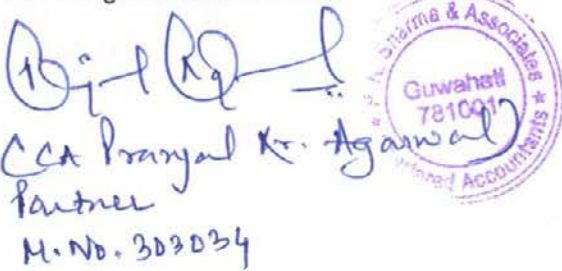 (CA Pranjal Kr. Agarwal)
Partner
M. No. 303034
Sharma & Associates
Guwahati
781001
Chartered Accountants